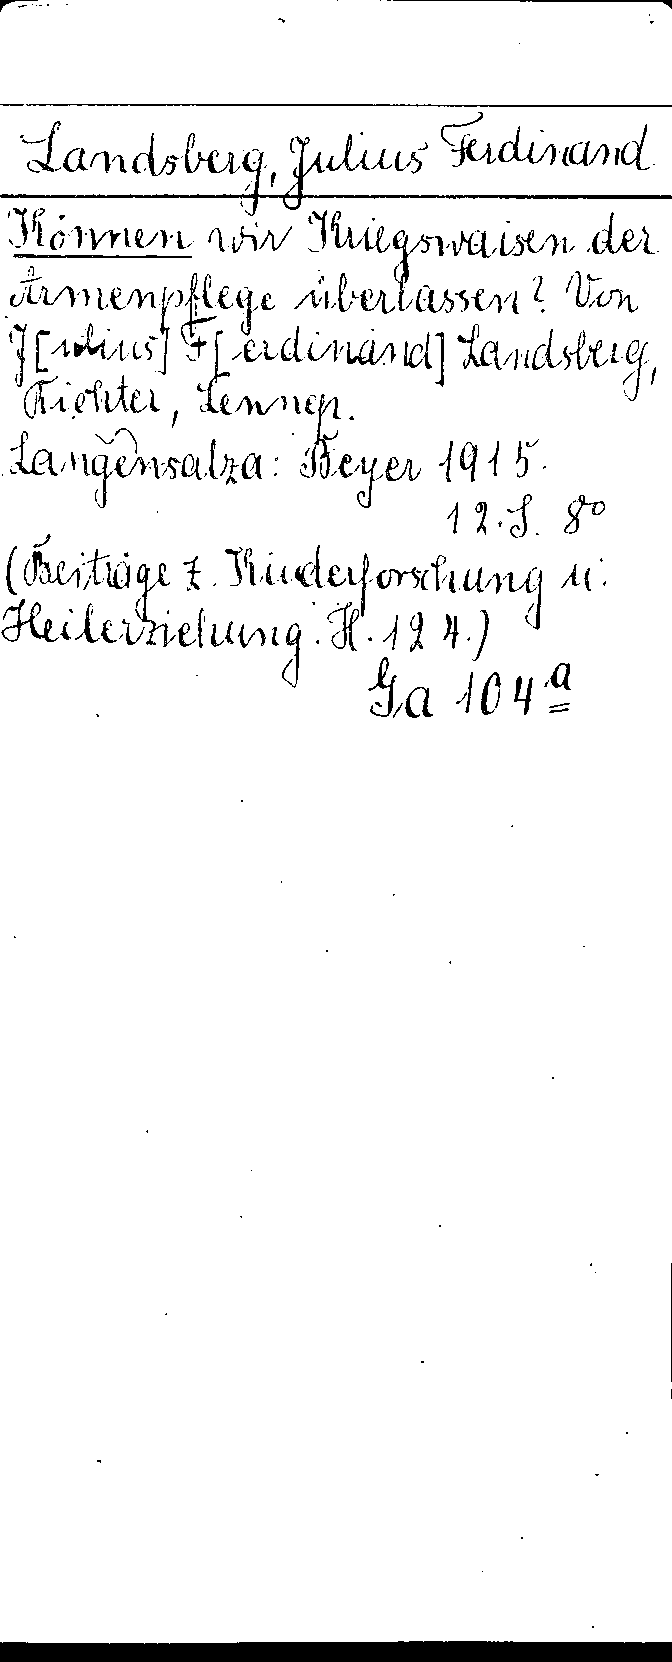 Landsberg, Julius Ferdinand
Können wir Kriegswaisen der
Armenpflege überlassen? Von
J[ulius] F[erdinand] Landsberg,
Richter, Lennep.
Langensalza: Beyer 1915.
12. S. 8°
(Beiträge z. Kinderforschung u.
Heilerziehung. H. 124.)
Ga 104ª